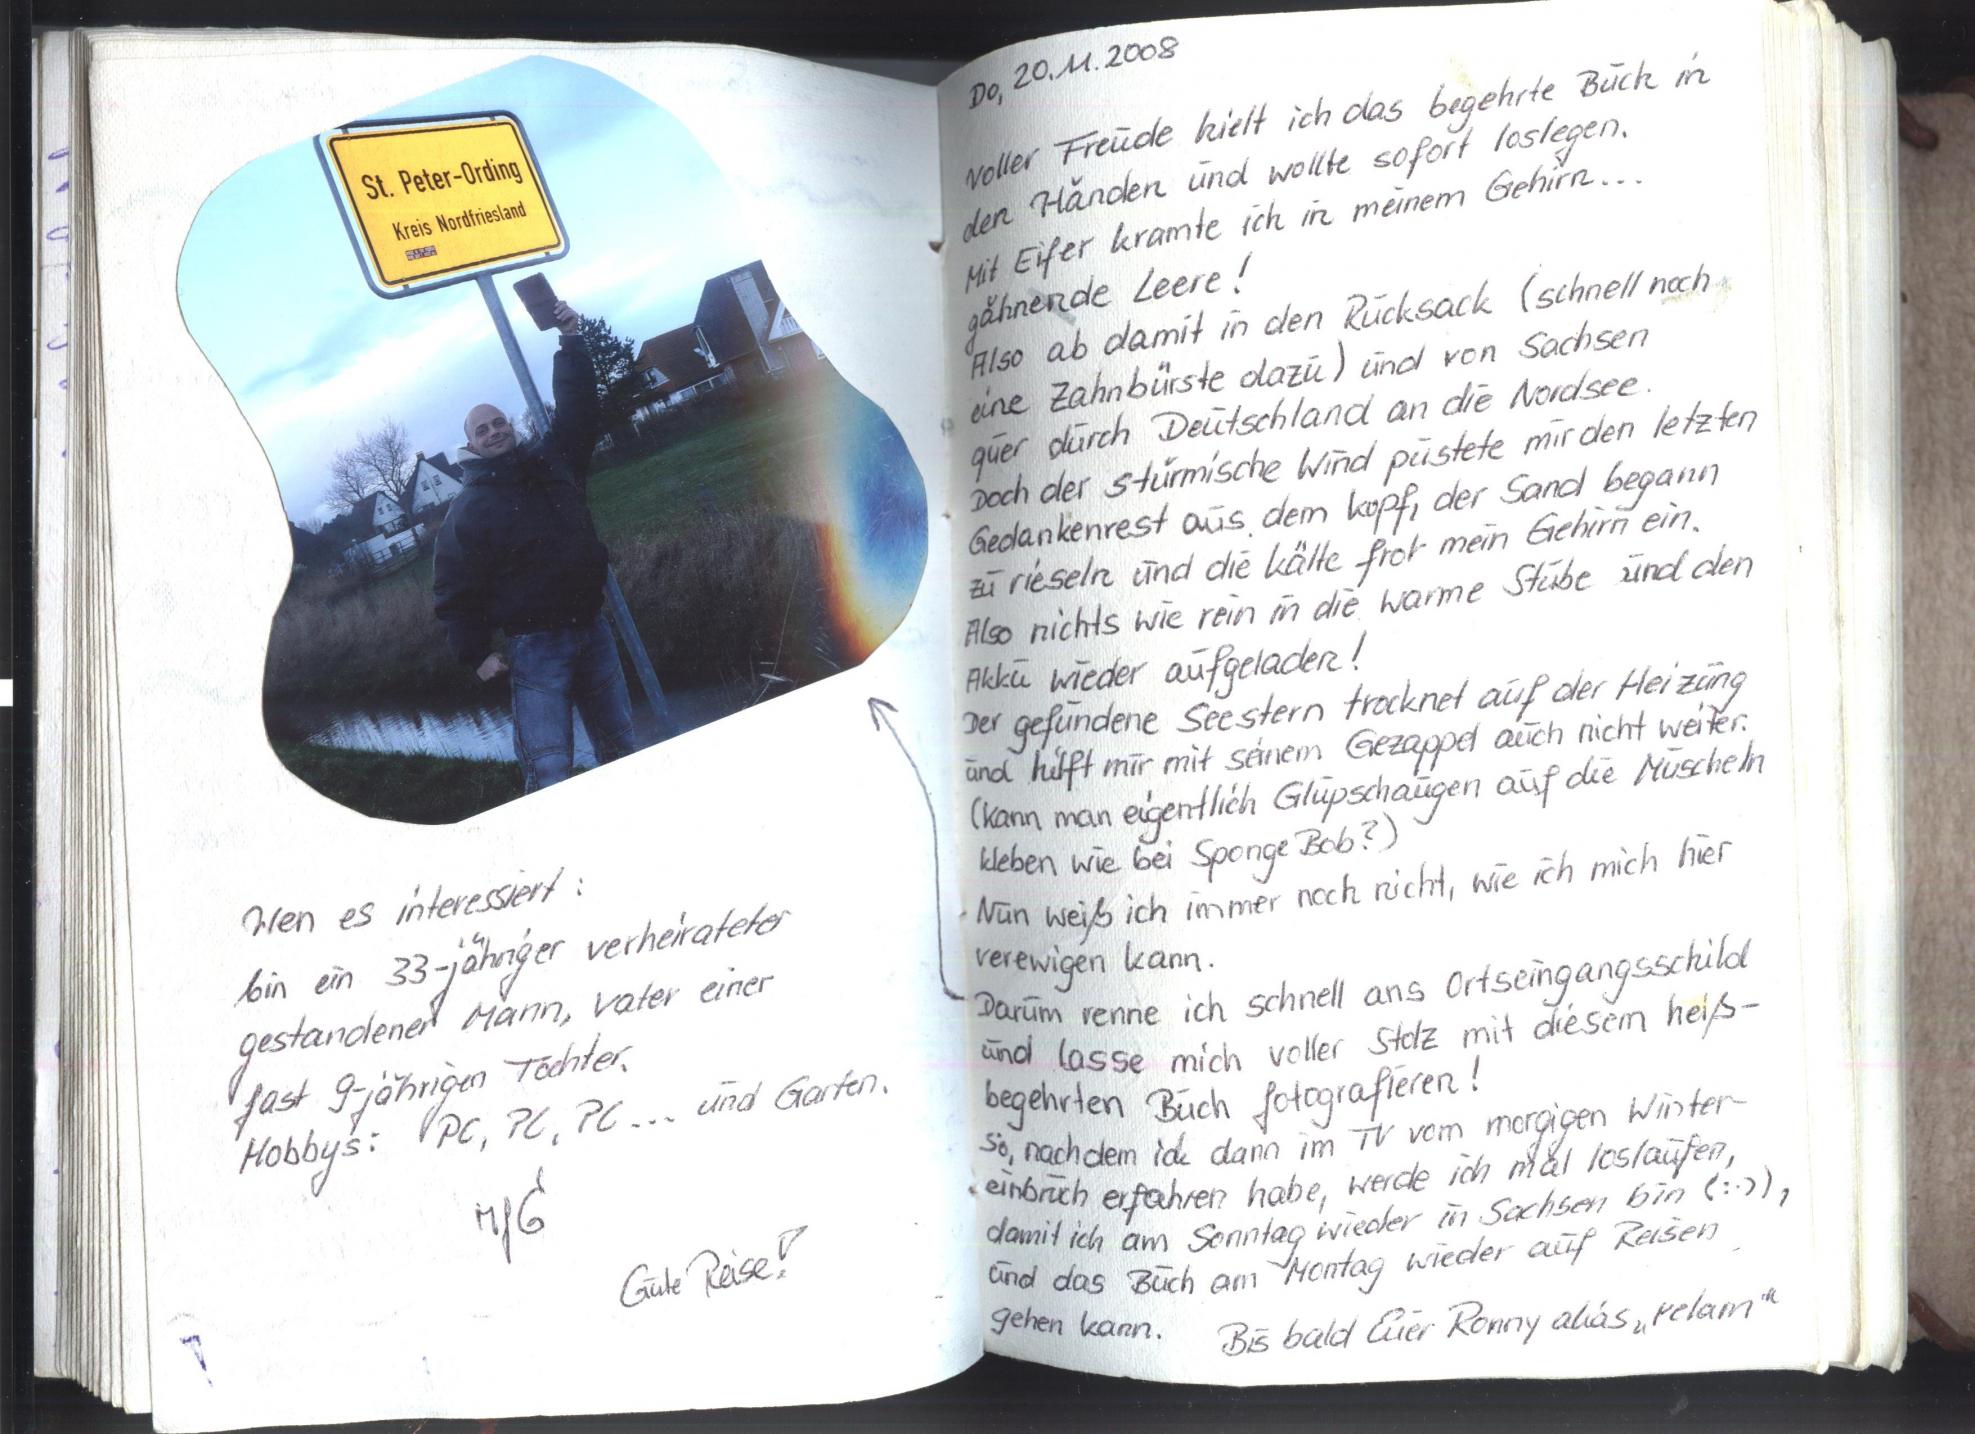 St. Peter-Ording
Kreis Nordfriesland
Wen es interessiert:
bin ein 33-jähriger verheirateter
gestandener Mann, Vater einer
fast 9-jährigen Tochter.
Hobbys: PC, PC, PC... und Garten.
MfG
Gute Reise!
Do, 20.11.2008
Voller Freude hielt ich das begehrte Buch in
den Händen und wollte sofort loslegen.
Mit Eifer kramte ich in meinem Gehirn...
gähnende Leere!
Also ab damit in den Rucksack (schnell noch
eine Zahnbürste dazu) und von Sachsen
quer durch Deutschland an die Nordsee.
Doch der stürmische Wind pustete mir den letzten
Gedankenrest aus dem Kopf, der Sand begann
zu rieseln und die Kälte fror mein Gehirn ein.
Also nichts wie rein in die warme Stube und den
Akku wieder aufgeladen!
Der gefundene Seestern trocknet auf der Heizung
und hilft mir mit seinem Gezappel auch nicht weiter.
(kann man eigentlich Glupschaugen auf die Muscheln
kleben wie bei SpongeBob?)
Nun weiß ich immer noch nicht, wie ich mich hier
verewigen kann.
Darum renne ich schnell ans Ortseingangsschild
und lasse mich voller Stolz mit diesem heiß-
begehrten Buch fotografieren!
So, nachdem ich dann im TV vom morgigen Winter-
einbruch erfahren habe, werde ich mal loslaufen,
damit ich am Sonntag wieder in Sachsen bin (:-)),
und das Buch am Montag wieder auf Reisen
gehen kann. Bis bald Euer Ronny alias „relam"